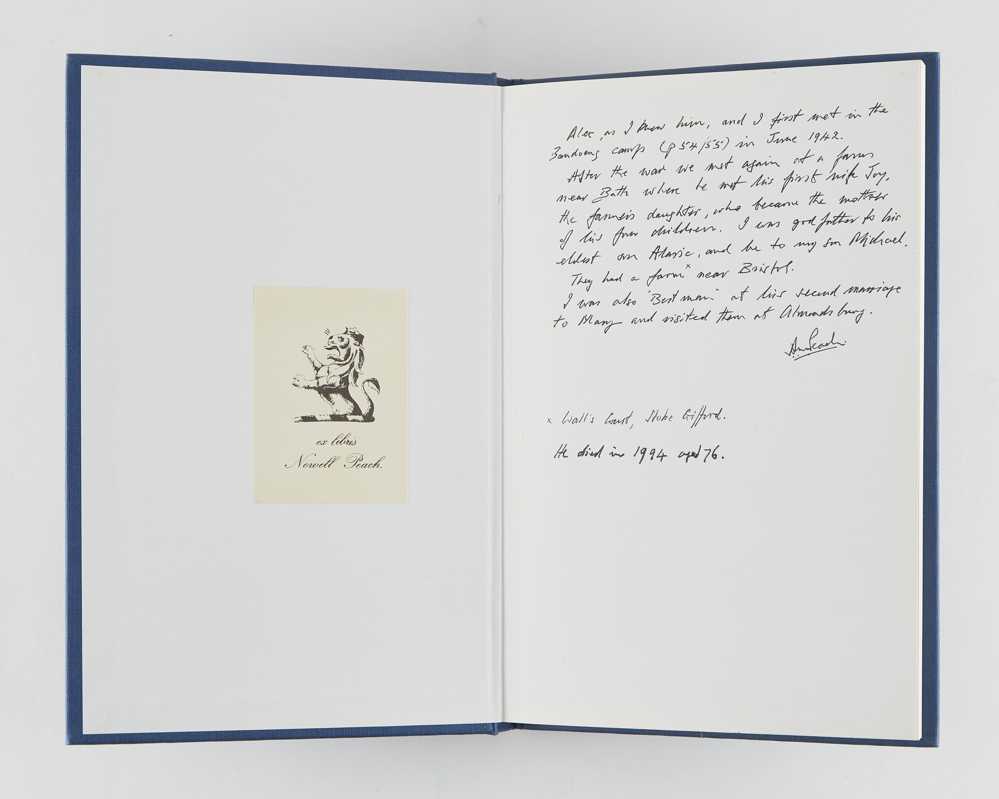 ex libris
Newell Peach.
Alec, as I knew him, and I first met in the
Bandoeng camp (p 54/55) in June 1942.
After the war we met again at a farm
near Bath where he met his first wife Joy,
the farmer's daughter, who became the mother
of his four children. I was godfather to his
eldest son Alaric, and he to my son Michael.
They had a farm x near Bristol.
I was also "Best man" at his second marriage
to Mary and visited them at Almondsbury.
x Wall's Court, Stoke Gifford.
He died in 1994 aged 76.